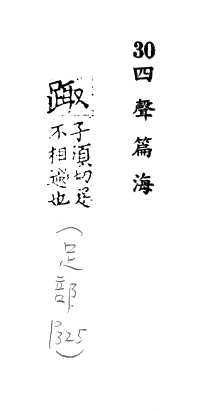 30四聲篇海
踙
子湏切足
不相過也
（足部 P325）